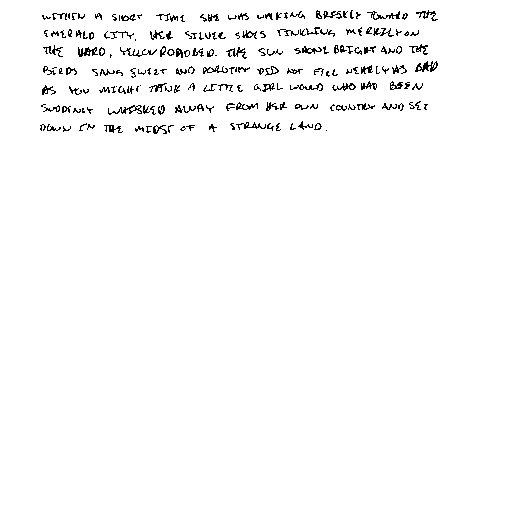 WITHIN A SHORT TIME SHE WAS WALKING BRISKLY TOWARD THE
EMERALD CITY, HER SILVER SHOES TINKLING MERRILY ON
THE HARD, YELLOW ROADBED. THE SUN SHONE BRIGHT AND THE
BIRDS SANG SWEET AND DOROTHY DID NOT FEEL NEARLY AS BAD
AS YOU MIGHT THINK A LITTLE GIRL WOULD WHO HAD BEEN
SUDDENLY WHISKED AWAY FROM HER OWN COUNTRY AND SET
DOWN IN THE MIDST OF A STRANGE LAND.